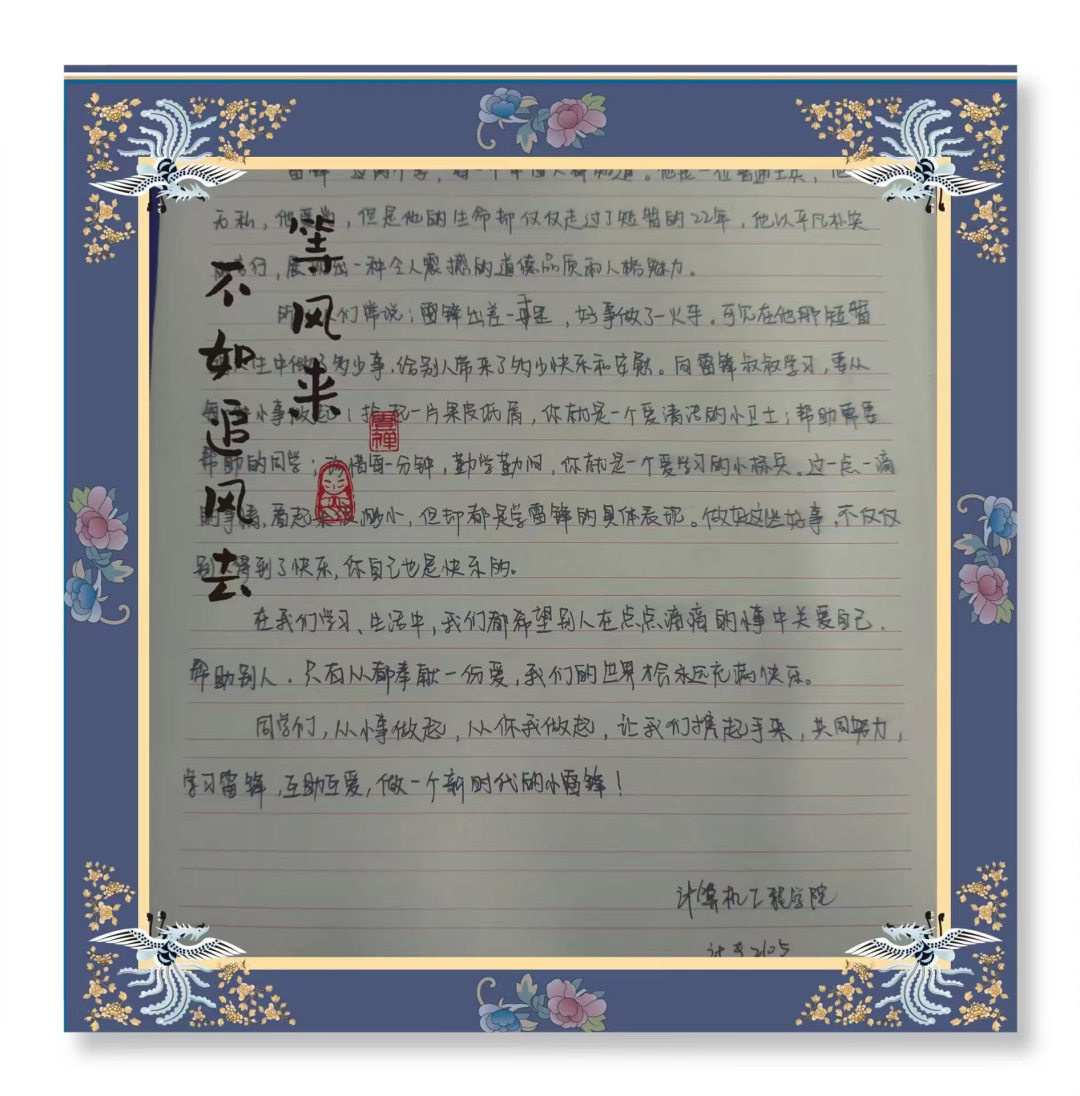 雷锋 这两个字，每一个中国人都知道。他是一位普通士兵，他
无私，他平凡，但是他的生命却仅仅走过了短暂的22年，他以平凡朴实
言行，展现出一种令人震撼的道德品质和人格魅力。
们常说：雷锋出差一千里，好事做了一火车。可见在他那短暂
生中做了多少事，给别人带来了多少快乐和安慰。向雷锋叔叔学习，要从
小事做起！拾起一片果皮纸屑，你就是一个爱清洁的小卫士；帮助需要
帮助的同学；珍惜每一分钟，勤学勤问，你就是一个爱学习的小标兵。这一点一滴
的事情，看起来很渺小，但却都是学雷锋的具体表现。做好这些好事，不仅仅
别 得到了快乐，你自己也是快乐的。
在我们学习、生活中，我们都希望别人在点点滴滴的小事中关爱自己，
帮助别人。只有从都奉献一份爱，我们的世界才会永远充满快乐。
同学们，从小事做起，从你我做起，让我们携起手来，共同努力，
学习雷锋，互助互爱，做一个新时代的小雷锋！
计算机工程学院
2105
等风来
不如追风去